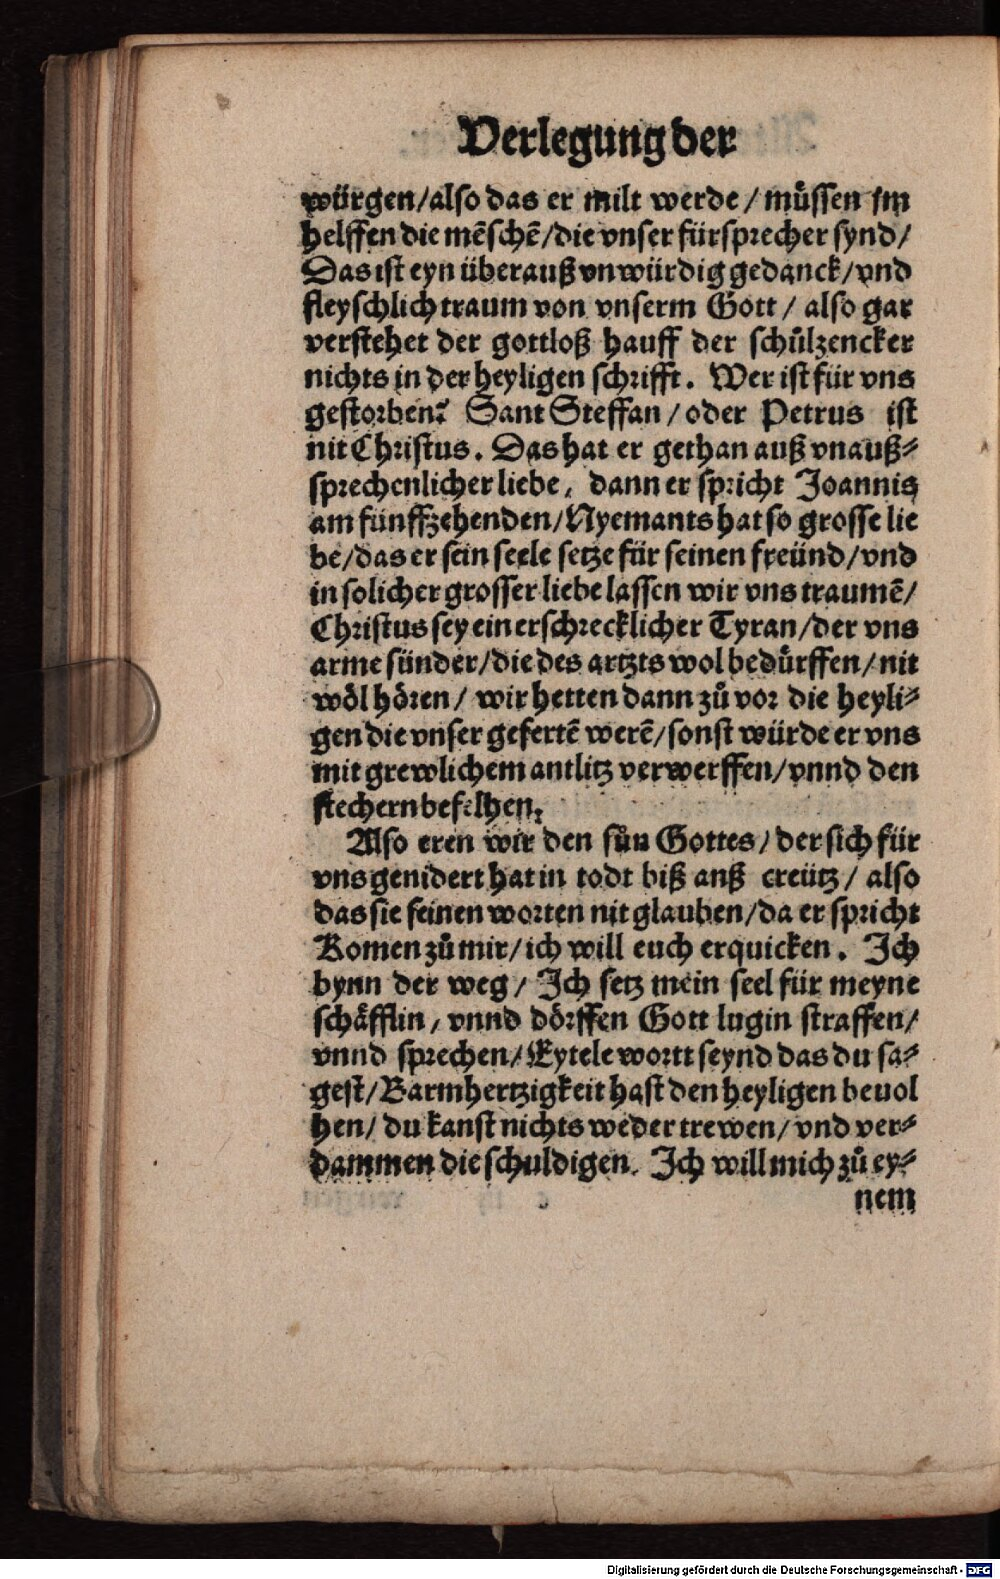 Verlegung der
würgen/also das er milt werde/ müssen jm
helffen die mẽschẽ/die vnser fürsprecher synd/
Das ist eyn überauß vnwürdig gedanck/vnd
fleyschlich traum von vnserm Gott/ also gar
verstehet der gottloß hauff der schůlzencker
nichts in der heyligen schrifft. Wer ist für vns
gestorben? Sant Steffan/oder Petrus ist
nit Christus. Das hat er gethan auß vnauß⸗
sprechenlicher liebe, dann er spricht Joannis
am fünffzehenden/Nyemants hat so grosse lie
be/das er sein seele setze für seinen freünd/vnd
in solicher grosser liebe lassen wir vns traumẽ/
Christus sey ein erschrecklicher Tyran/der vns
arme sünder/die des artzts wol bedürffen/nit
wöl hören/ wir hetten dann zů vor die heyli⸗
gen die vnser gefertẽ werẽ/sonst würde er vns
mit grewlichem antlitz verwerffen/vnnd den
stechern befelhen.
Also eren wir den sůn Gottes/der sich für
vns genidert hat in todt biß anß creütz/ also
das sie seinen worten nit glauben/da er spricht
Komen zů mir/ich will euch erquicken. Ich
bynn der weg/ Ich setz mein seel für meyne
schäfflin, vnnd dörffen Gott lugin straffen/
vnnd sprechen/Eytele wortt seynd das du sa⸗
gest/Barmhertzigkeit hast den heyligen beuol
hen/ du kanst nichts weder trewen/ vnd ver⸗
dammen die schuldigen. Ich will mich zů ey⸗
nem
Digitalisierung gefördert durch die Deutsche Forschungsgemeinschaft - DFG